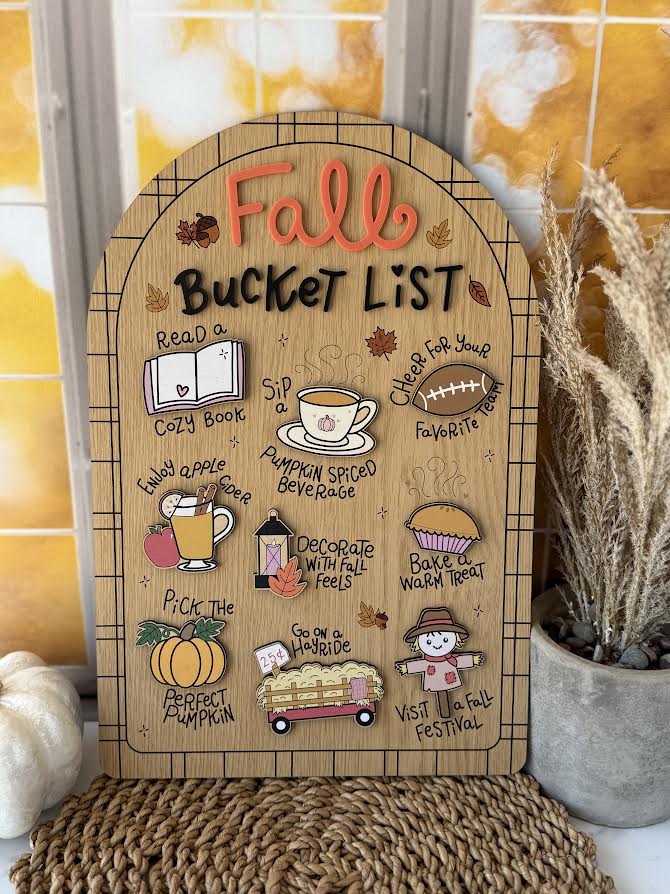 Fall
Bucket List
Read a
Cozy Book
Sip
a
Pumpkin Spiced
Beverage
Cheer for your
Favorite Team
Enjoy Apple Cider
Decorate
with Fall
Feels
Bake a
Warm Treat
Pick the
Perfect
Pumpkin
Go on a
Hayride
25¢
Visit a Fall
Festival